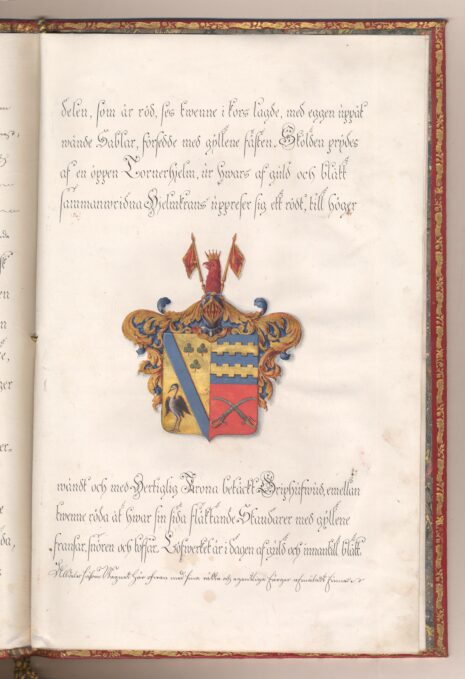 delen, som är röd, ses twenne i kors lagde, med eggen uppåt
wände Sablar, försedde med gyllene fästen. Skölden prydes
af en öppen Tornerhjelm, ur hwars af guld och blått
sammanwridna Helmkrans uppreser sig ett rödt, till höger
wändt och med Hertiglig Krona betäckt Griphufwud, emellan
twenne röda åt hwar sin sida fläktande Standarer med gyllene
fransar, snören och tofsar. Löfwerket är i dagen af guld och innantill blått
Alldeles såsom Wapnet här ofwan med sina rätta och egentliga färger afmåladt finnes